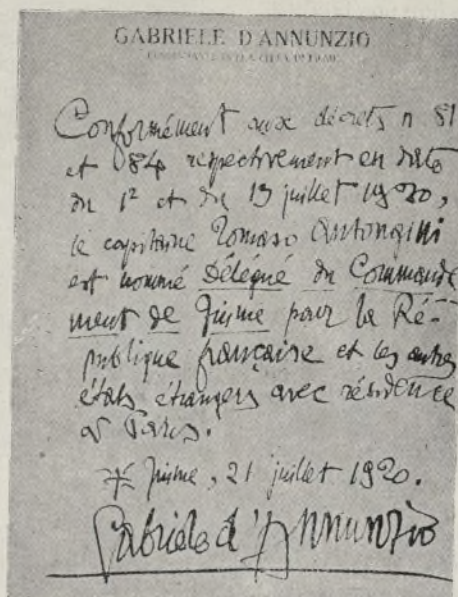 GABRIELE D'ANNUNZIO
Conformément aux décrets n 81
et 84 respectivement en date
du 1º et du 13 juillet 1920,
le capitaine Tomaso Antongini
est nommé Délégué du Commande
ment de Fiume pour la Ré-
publique française et les autres
états étrangers avec résidence
à Paris.
Fiume, 21 juillet 1920.
Gabriele d'Annunzio